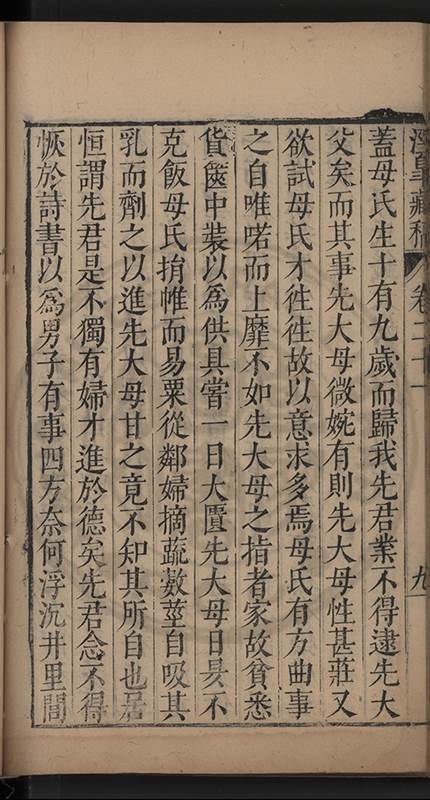 涇臯藏稿 卷二十一 九
蓋母氏生十有九歲而歸我先君業不得逮先大
父矣而其事先大母微婉有則先大母性甚莊又
欲試母氏才徃徃故以意求多焉母氏有方曲事
之自唯喏而上靡不如先大母之指者家故貧悉
貨篋中裝以為供具嘗一日大匱先大母日昃不
克飯母氏捐帷而易粟從鄰婦摘蔬數莖自吸其
乳而劑之以進先大母甘之竟不知其所自也居
恒謂先君是不獨有婦才進於德矣先君念不得
恢於詩書以為男子有事四方奈何浮沉井里間